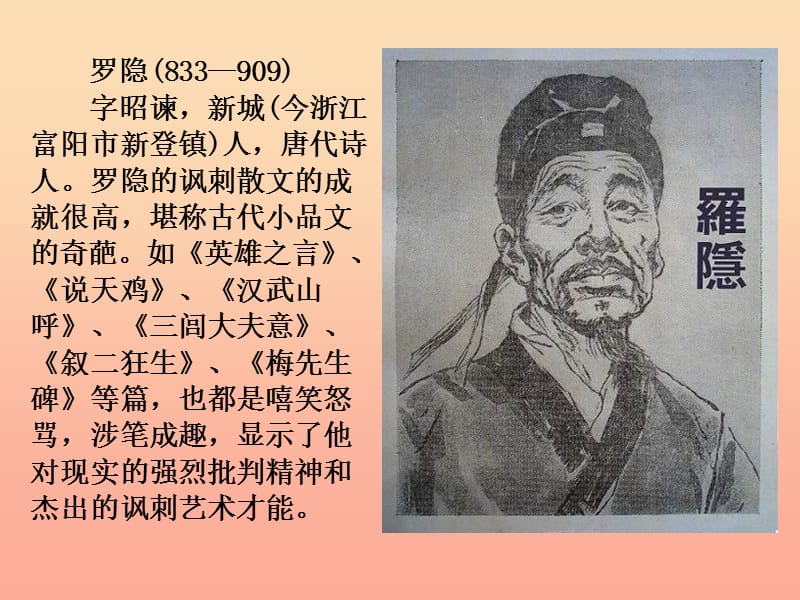 罗隐(833—909)
字昭谏，新城(今浙江
富阳市新登镇)人，唐代诗
人。罗隐的讽刺散文的成
就很高，堪称古代小品文
的奇葩。如《英雄之言》、
《说天鸡》、《汉武山
呼》、《三闾大夫意》、
《叙二狂生》、《梅先生
碑》等篇，也都是嘻笑怒
骂，涉笔成趣，显示了他
对现实的强烈批判精神和
杰出的讽刺艺术才能。
羅隱